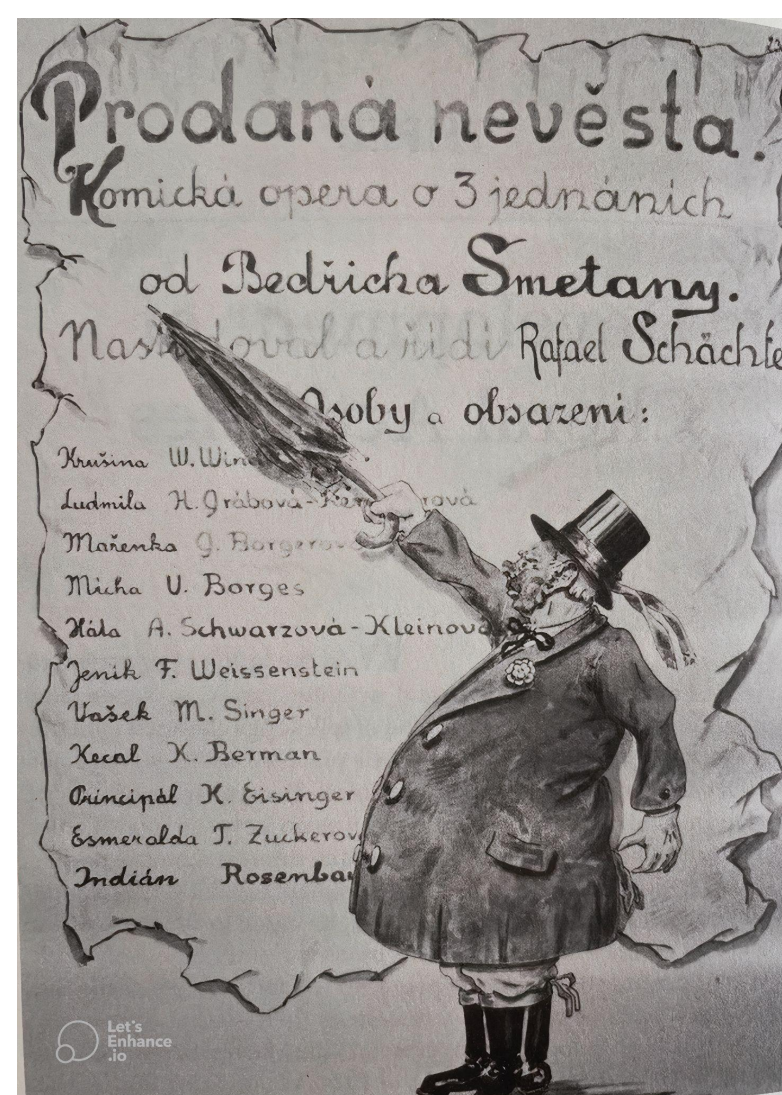 Prodaná nevěsta.
Komická opera o 3 jednáních
od Bedřicha Smetany.
Nastudoval a řídí Rafael Schächte
Osoby a obsazení:
Krušina W. Wind
Ludmila H. Grábová-Ker rová
Mařenka G. Borgerová
Micha V. Borges
Háta A. Schwarzová-Kleinová
Jeník F. Weissenstein
Vašek M. Singer
Kecal K. Berman
Principál K. Eisinger
Esmeralda T. Zuckerov
Indián Rosenbau
Let's
Enhance
.io